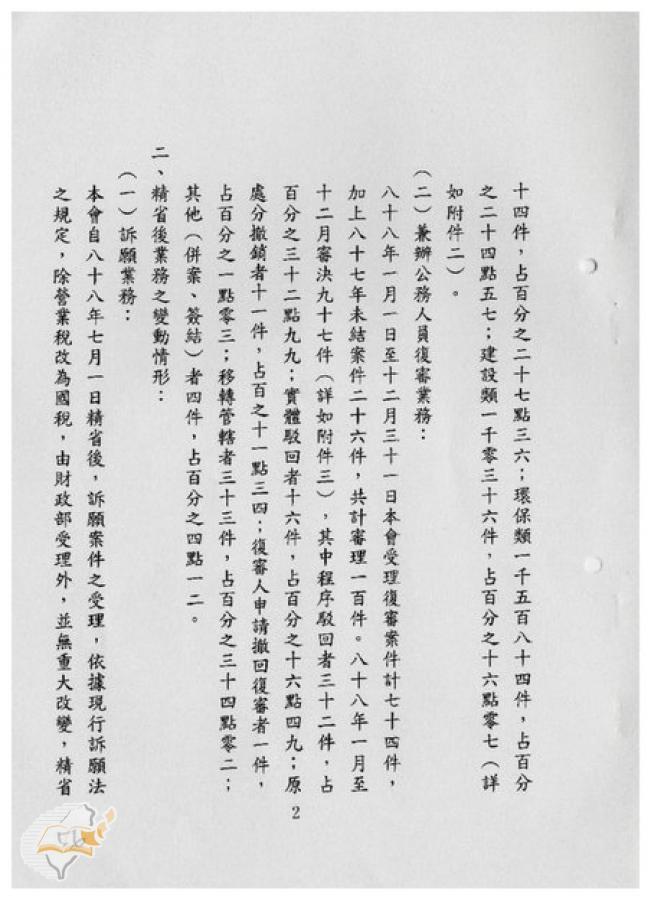 十四件，占百分之二十七點三六；環保類一千五百八十四件，占百分
之二十四點五七；建設類一千零三十六件，占百分之十六點零七（詳
如附件二）。
（二）兼辦公務人員復審業務：
八十八年一月一日至十二月三十一日本會受理復審案件計七十四件，
加上八十七年未結案件二十六件，共計審理一百件。八十八年一月至
十二月審決九十七件（詳如附件三），其中程序駁回者三十二件，占
百分之三十二點九九；實體駁回者十六件，占百分之十六點四九；原
處分撤銷者十一件，占百之十一點三四；復審人申請撤回復審者一件，
占百分之一點零三；移轉管轄者三十三件，占百分之三十四點零二；
其他（併案、簽結）者四件，占百分之四點一二。
二、精省後業務之變動情形：
（一）訴願業務：
本會自八十八年七月一日精省後，訴願案件之受理，依據現行訴願法
之規定，除營業稅改為國稅，由財政部受理外，並無重大改變，精省
2
56